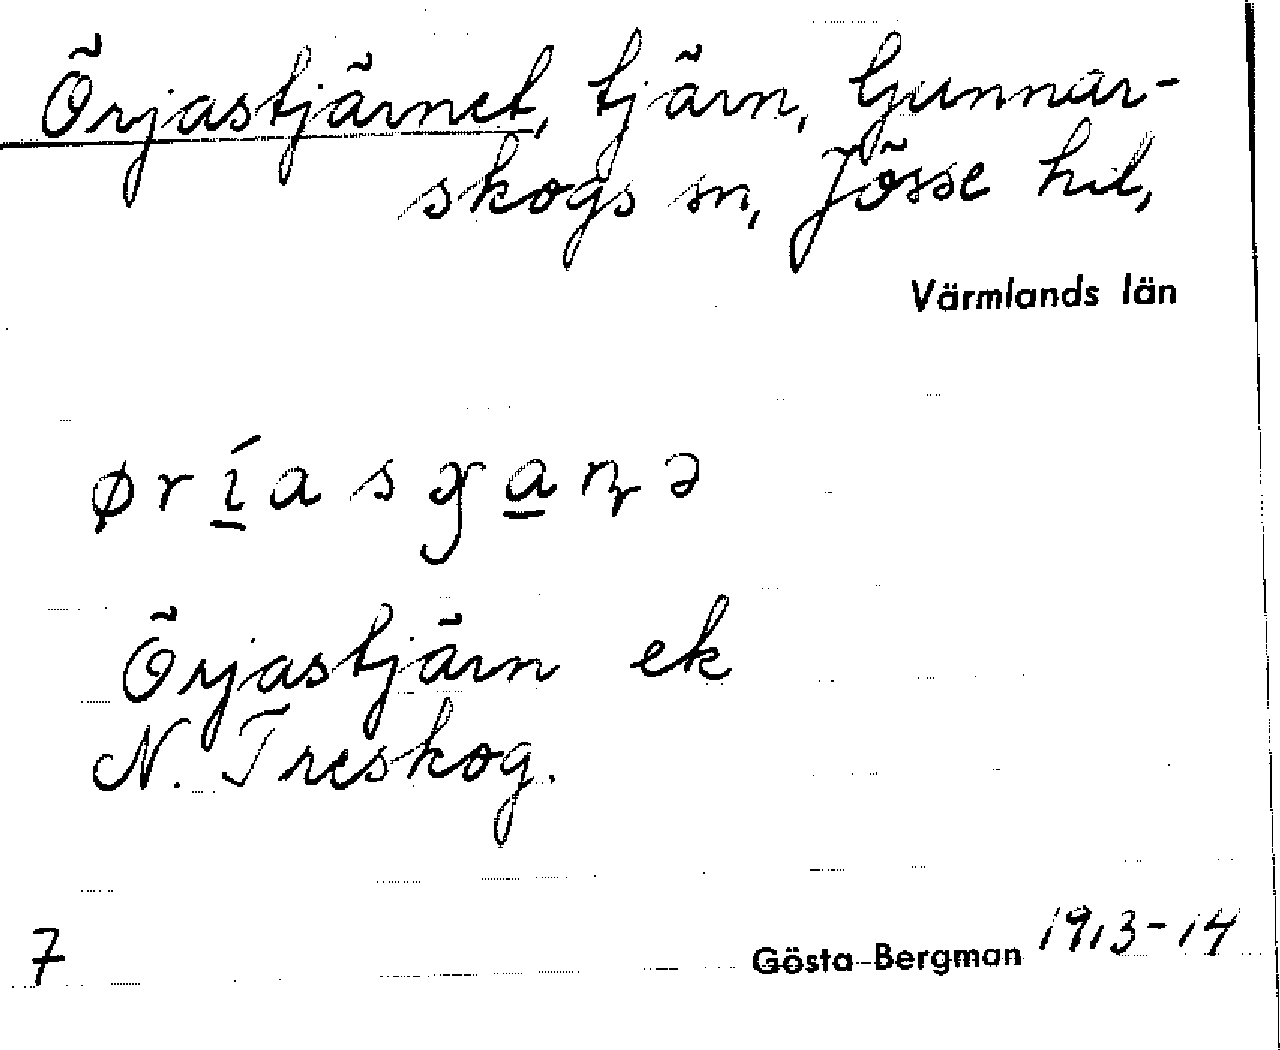 Örjastjärnet, tjärn, Gunnar-
skogs sn, Jösse hd,
Värmlands län
Örjastjärn ek
N. Treskog.
7
Gösta Bergman 1913-14